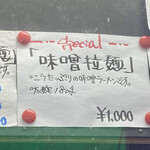 Special
「味噌拉麺」
※ニラたっぷりの味噌ラーメンです。
¥1,000